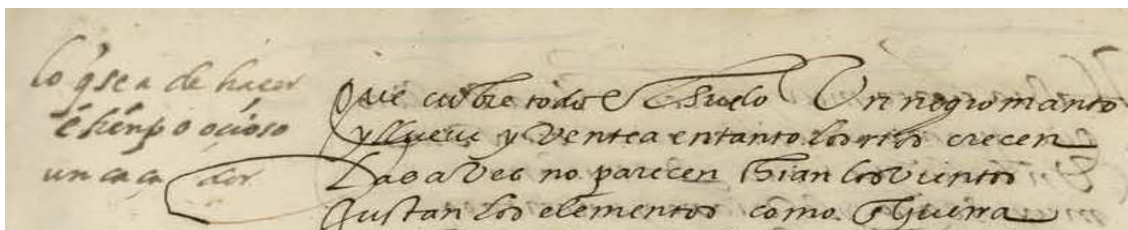 lo q̃ se a de hacer
ẽ tiẽnpo oçioso
un caçador
Que cubre todo el suelo Un negro manto
y llueve y Ventea entanto los rios crecen
Las aVes no parecen los Vientos
Justan los elementos como Guerra